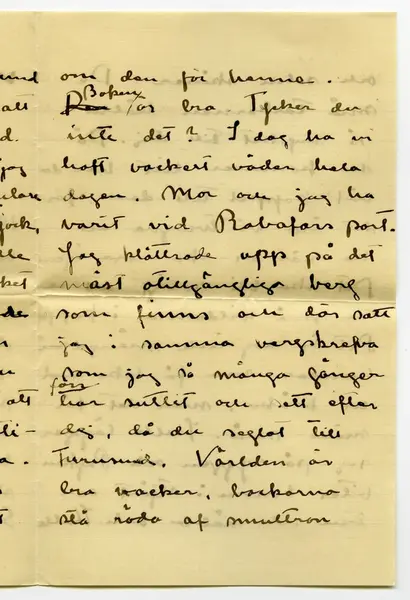 und om den för henne.
att Boken är bra Tycker du
d. inte det? I dag ha vi
jag haft vackert väder hela
dagen. Mor och jag ha
jock, varit vid Rabafars port.
lle Jag klättrade upp på det
ket mäst otillgängliga berg
de som finns och där satt
n jag i samma bergskrefva
u som jag så många gånger
att förr har suttit och sett efter
li- dig, då du seglat till
a. Furusund. Världen är
s bra vacker, backarna
t stå röda af smultron